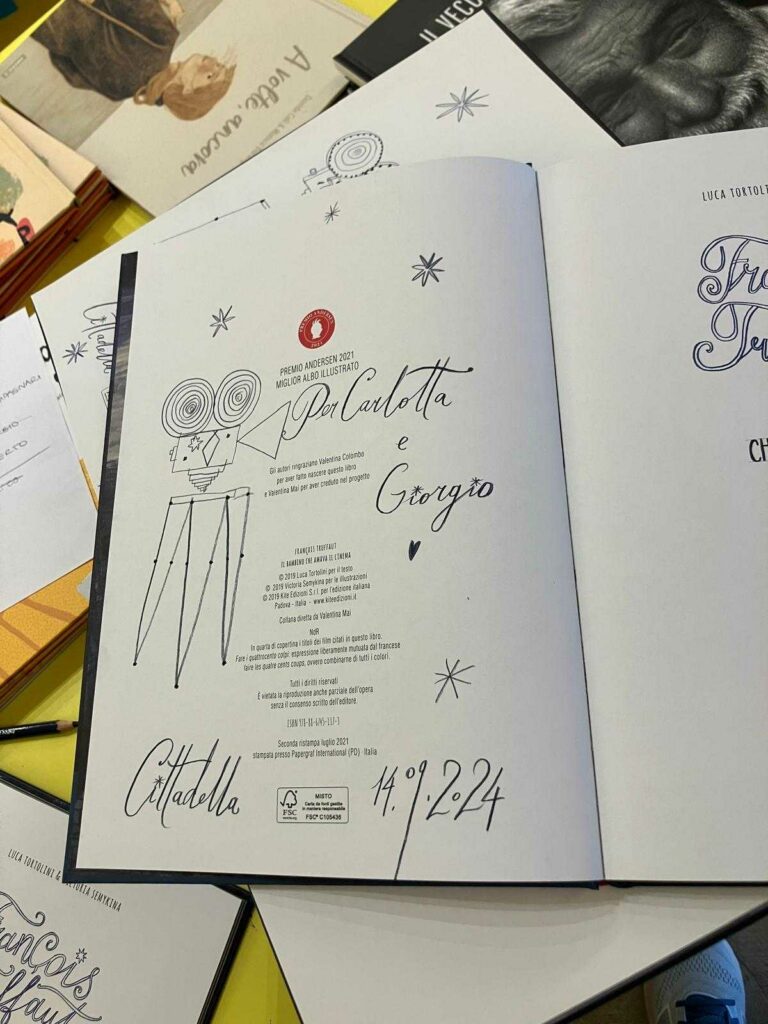 A volte, ancora
IL VECC
LUCA TORTOLI
Fra
CH
PREMIO ANDERSEN
PREMIO ANDERSEN 2021
MIGLIOR ALBO ILLUSTRATO
Per Carlotta
e
Giorgio
Gli autori ringraziano Valentina Colombo
per aver fatto nascere questo libro
e Valentina Mai per aver creduto nel progetto
FRANÇOIS TRUFFAUT
IL BAMBINO CHE AMAVA IL CINEMA
© 2019 Luca Tortolini per il testo
© 2019 Victoria Semykina per le illustrazioni
© 2019 Kite Edizioni S.r.l. per l'edizione italiana
Padova - Italia - www.kiteedizioni.it
Collana diretta da Valentina Mai
NdR
In quarta di copertina i titoli dei film citati in questo libro.
Fare i quattrocento colpi: espressione liberamente mutuata dal francese
faire les quatre cents coups, ovvero combinarne di tutti i colori.
Tutti i diritti riservati
È vietata la riproduzione anche parziale dell'opera
senza il consenso scritto dell'editore
ISBN 978-88-6745-137-1
Seconda ristampa luglio 2021
stampata presso Papergraf International (PD) · Italia
Cittadella
FSC
MISTO
Carta da fonti gestite
in maniera responsabile
FSC® C105436
14.09.2024
Cittadella
LUCA TORTOLINI & VICTORIA SEMYKINA
François